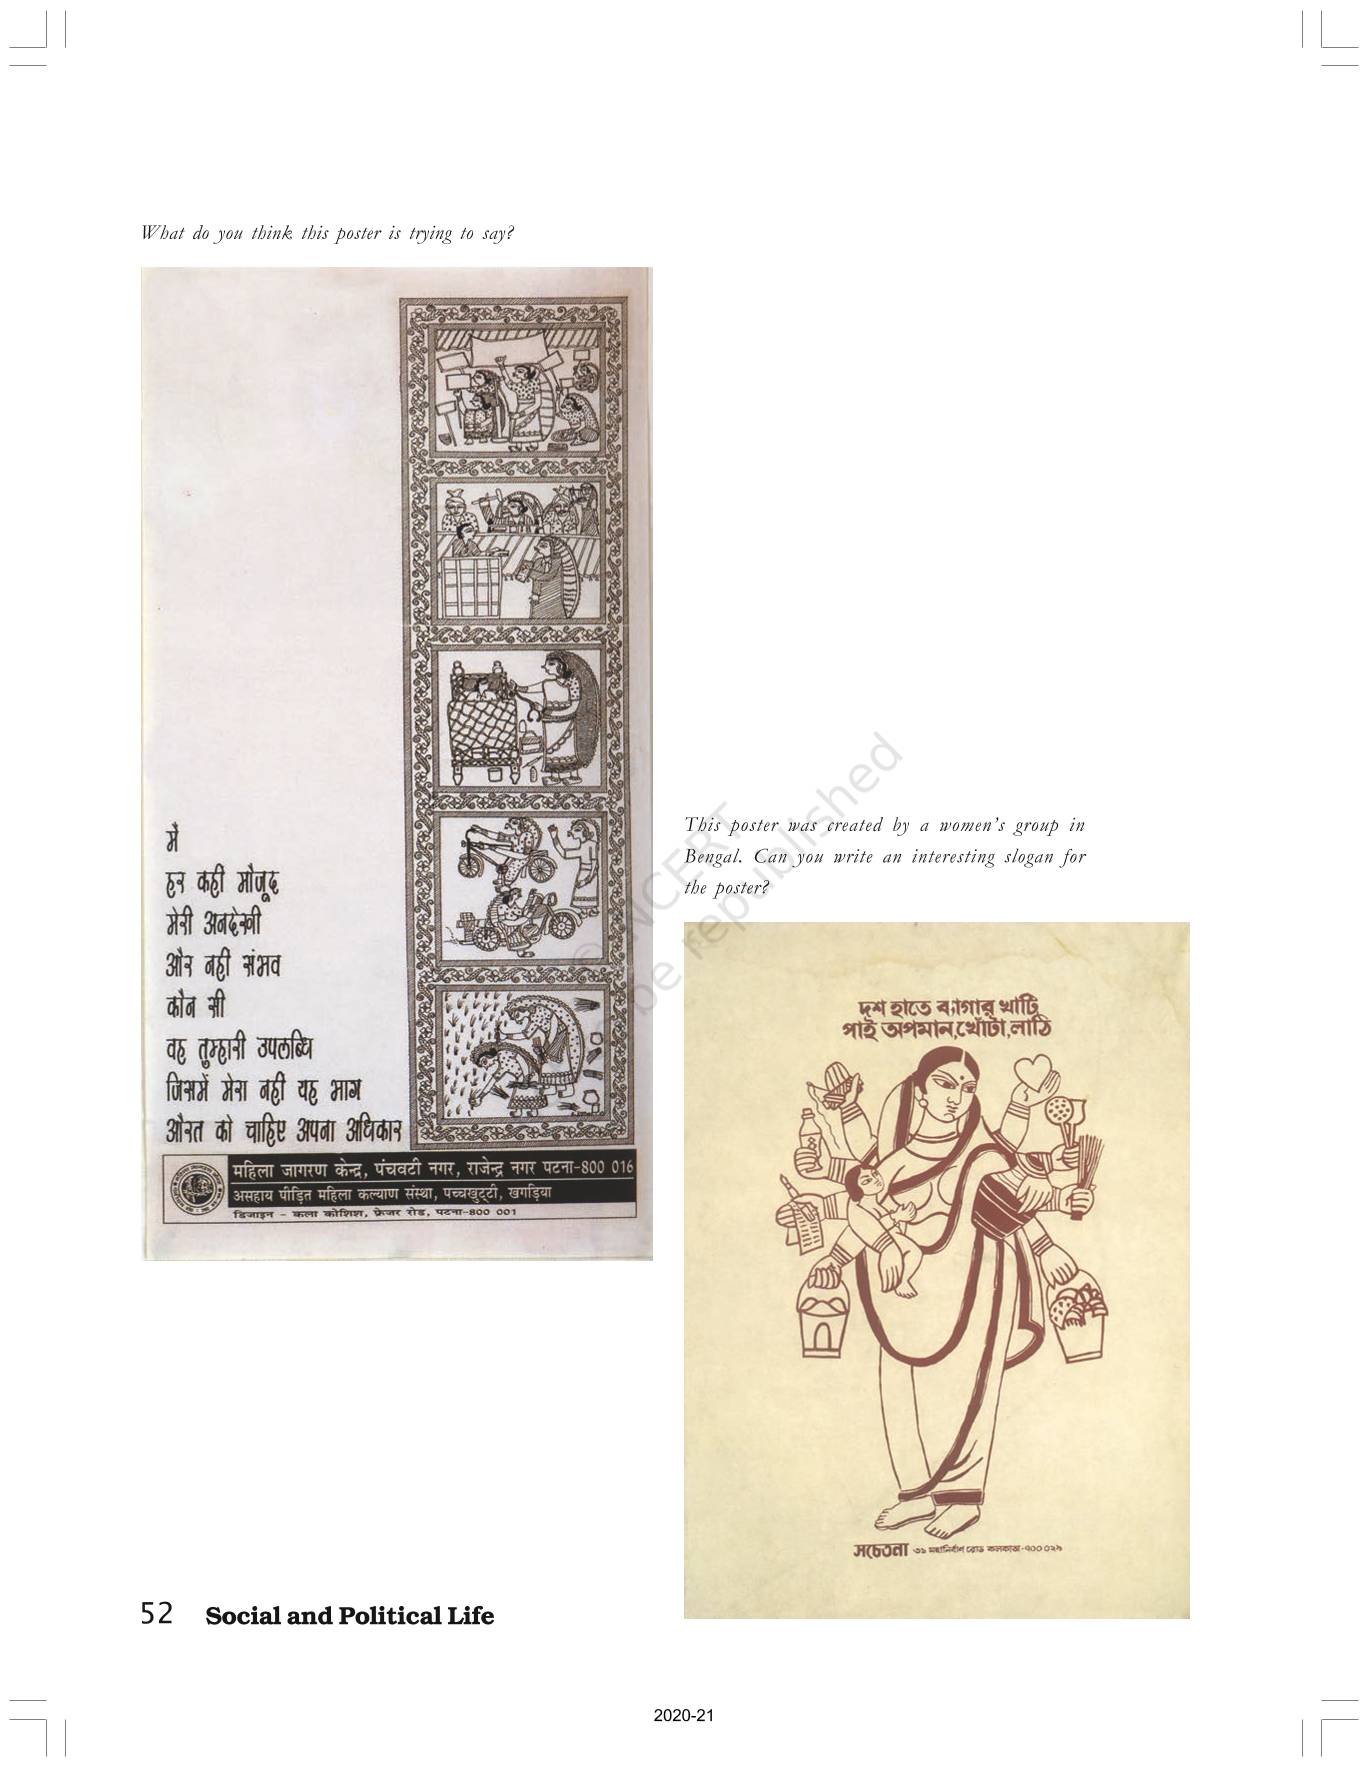 What do you think this poster is trying to say?
मैं
हर कहीं मौजूद
मेरी अनदेखी
और नहीं संभव
कौन सी
वह तुम्हारी उपलब्धि
जिसमें मेरा नहीं यह भाग
औरत को चाहिए अपना अधिकार
महिला जागरण केन्द्र, पंचवटी नगर, राजेन्द्र नगर पटना-800 016
असहाय पीड़ित महिला कल्याण संस्था, पच्चखुट्टी, खगड़िया
डिजाइन - कला कोशिश, फ्रेजर रोड, पटना-800 001
© NCERT
be republished
This poster was created by a women's group in
Bengal. Can you write an interesting slogan for
the poster?
দশ হাতে ব্যাগার খাটি
পাই অপমান, খোঁটা, লাঠি
সচেতনা ৩১ মহানির্বাণ রোড কলকাতা-৭০০ ০২৯
52 Social and Political Life
2020-21